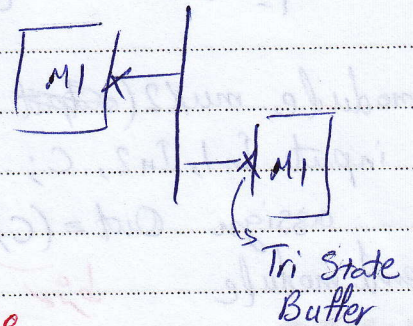 M1
M1
Tri State
Buffer